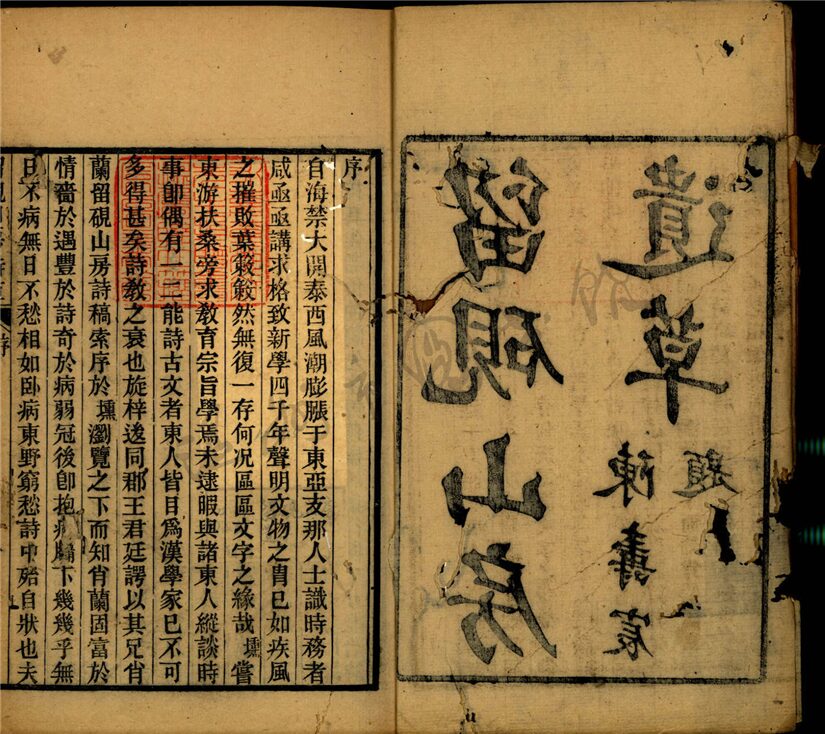 留硯山房
遺草
陳壽宸
題
序
自海禁大開泰西風潮膨脹于東亞支那人士識時務者
咸亟亟講求格致新學四千年聲明文物之冑已如疾風
之摧敗葉簌簌然無復一存何況區區文字之緣哉壎嘗
東游扶桑旁求教育宗旨學焉未逮暇與諸東人縱談時
事卽偶有一二能詩古文者東人皆目爲漢學家已不可
多得甚矣詩教之衰也旋梓返同郡王君廷諤以其兄肖
蘭留硯山房詩稿索序於壎瀏覽之下而知肖蘭固富於
情嗇於遇豐於詩奇於病弱冠後卽抱疴牖下幾幾乎無
日不病無日不愁相如卧病東野窮愁詩中殆自狀也夫